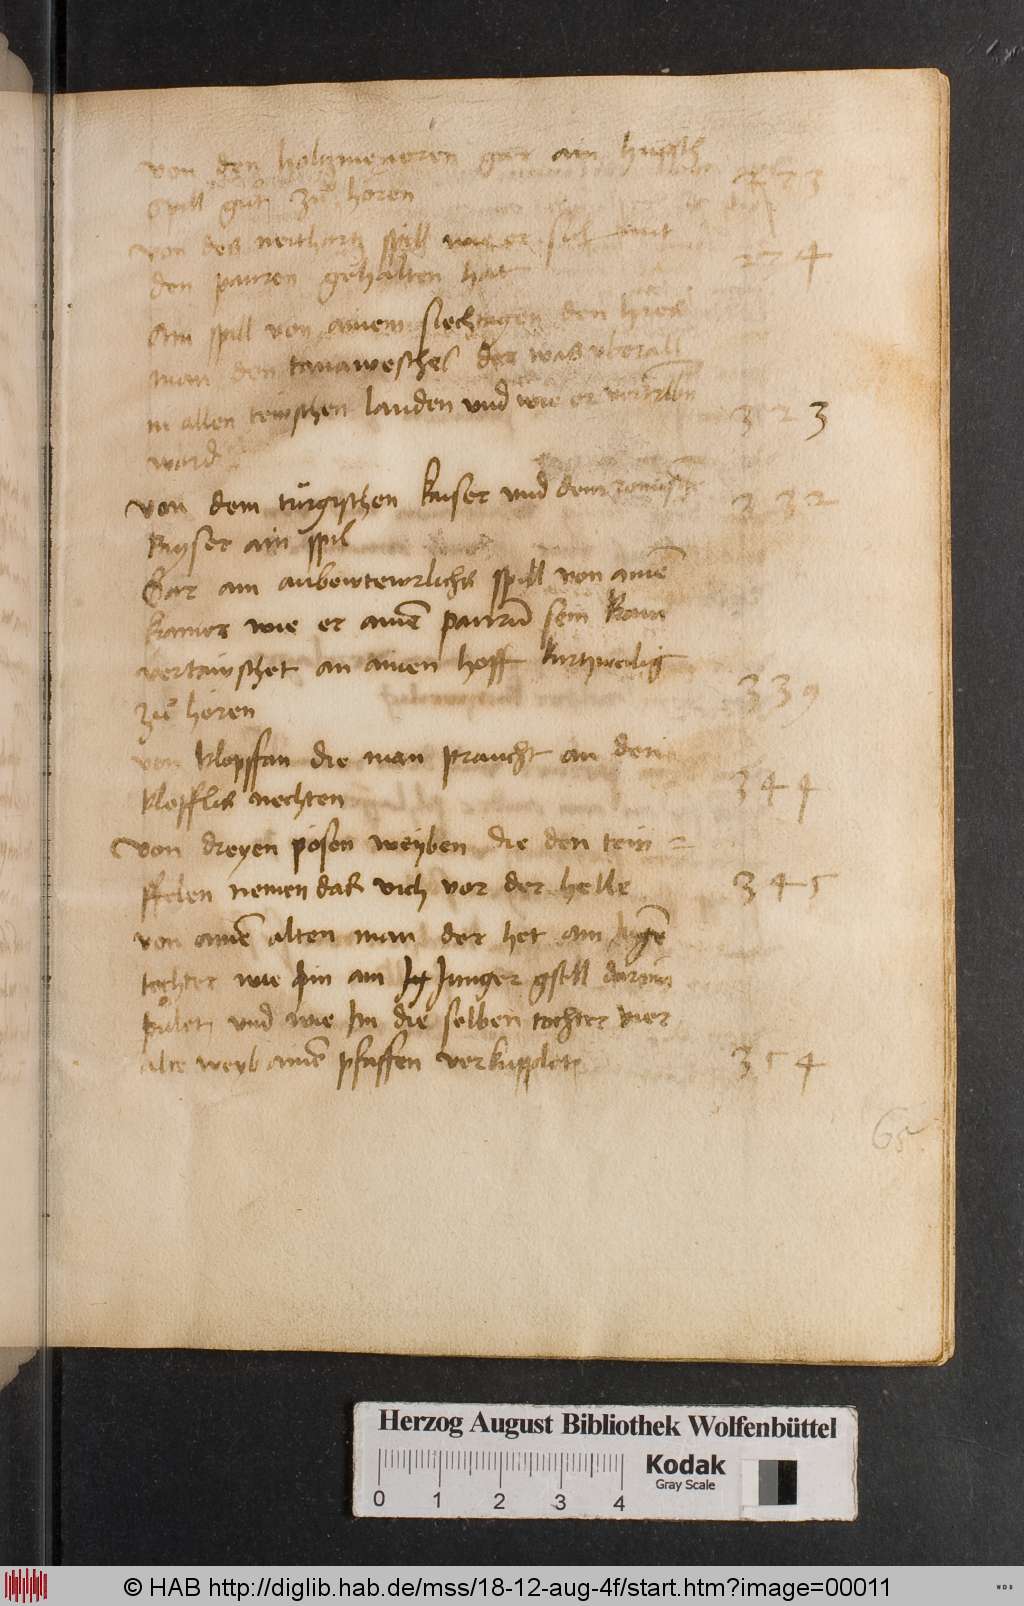 von den holtzmeÿeren gar ain hüpsch
spill gut zu horen 273
von des neitharz spill wie er sich mit
den pauren gehalten hat 274
Ain spill von ainem siechtagen den hies
man den tanaweschel der was vberall
in allen teuschen landen und wie er vertribn
ward 323
von dem türgischen kaiser und dem romisch
Kayser ain spil 332
Gar ain aubentewrlichs spill von aine
kramer wie er aine paurn sein
vertawschet an ainen hoff kurtzweilig
zu horen 339
von klopffan die man praucht an den
klopfflis nechten 344
von dreyen posen weyben die den teiu
ffelen nemen das vich vor der helle 345
von aine alten man der het ain
tochter wie ain Junger gsell darum
pulet und wie Im die selben tochter
alte weyb aine pfaffen verkupplet 354
65
Herzog August Bibliothek Wolfenbüttel
Kodak
Gray Scale
0 1 2 3 4
© HAB http://diglib.hab.de/mss/18-12-aug-4f/start.htm?image=00011